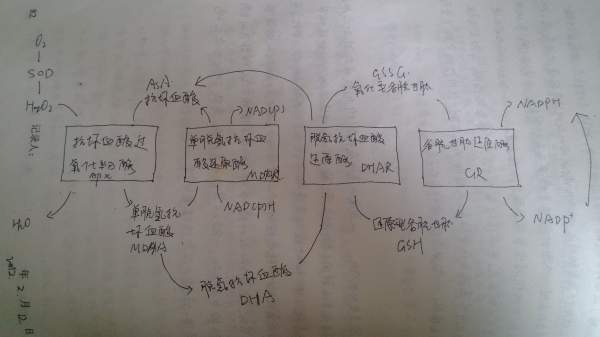 O₂
SOD
H₂O₂
记录人：
H₂O
年 2 月 12 日
AsA
抗坏血酸
抗坏血酸过
氧化物酶
APX
单脱氢抗
坏血酸
MDHA
NADP
单脱氢抗坏血
酸还原酶
MDHAR
NADPH
脱氢抗坏血酸
DHA
脱氢抗坏血酸
还原酶
DHAR
GSSG
氧化型谷胱甘肽
谷胱甘肽还原酶
GR
还原型谷胱甘肽
GSH
NADPH
NADP⁺